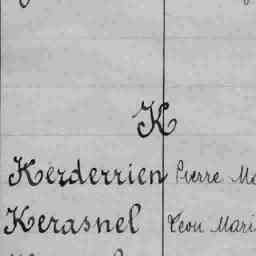 K
Kerderrien Pierre Ma
Kerasnel Leon Mari